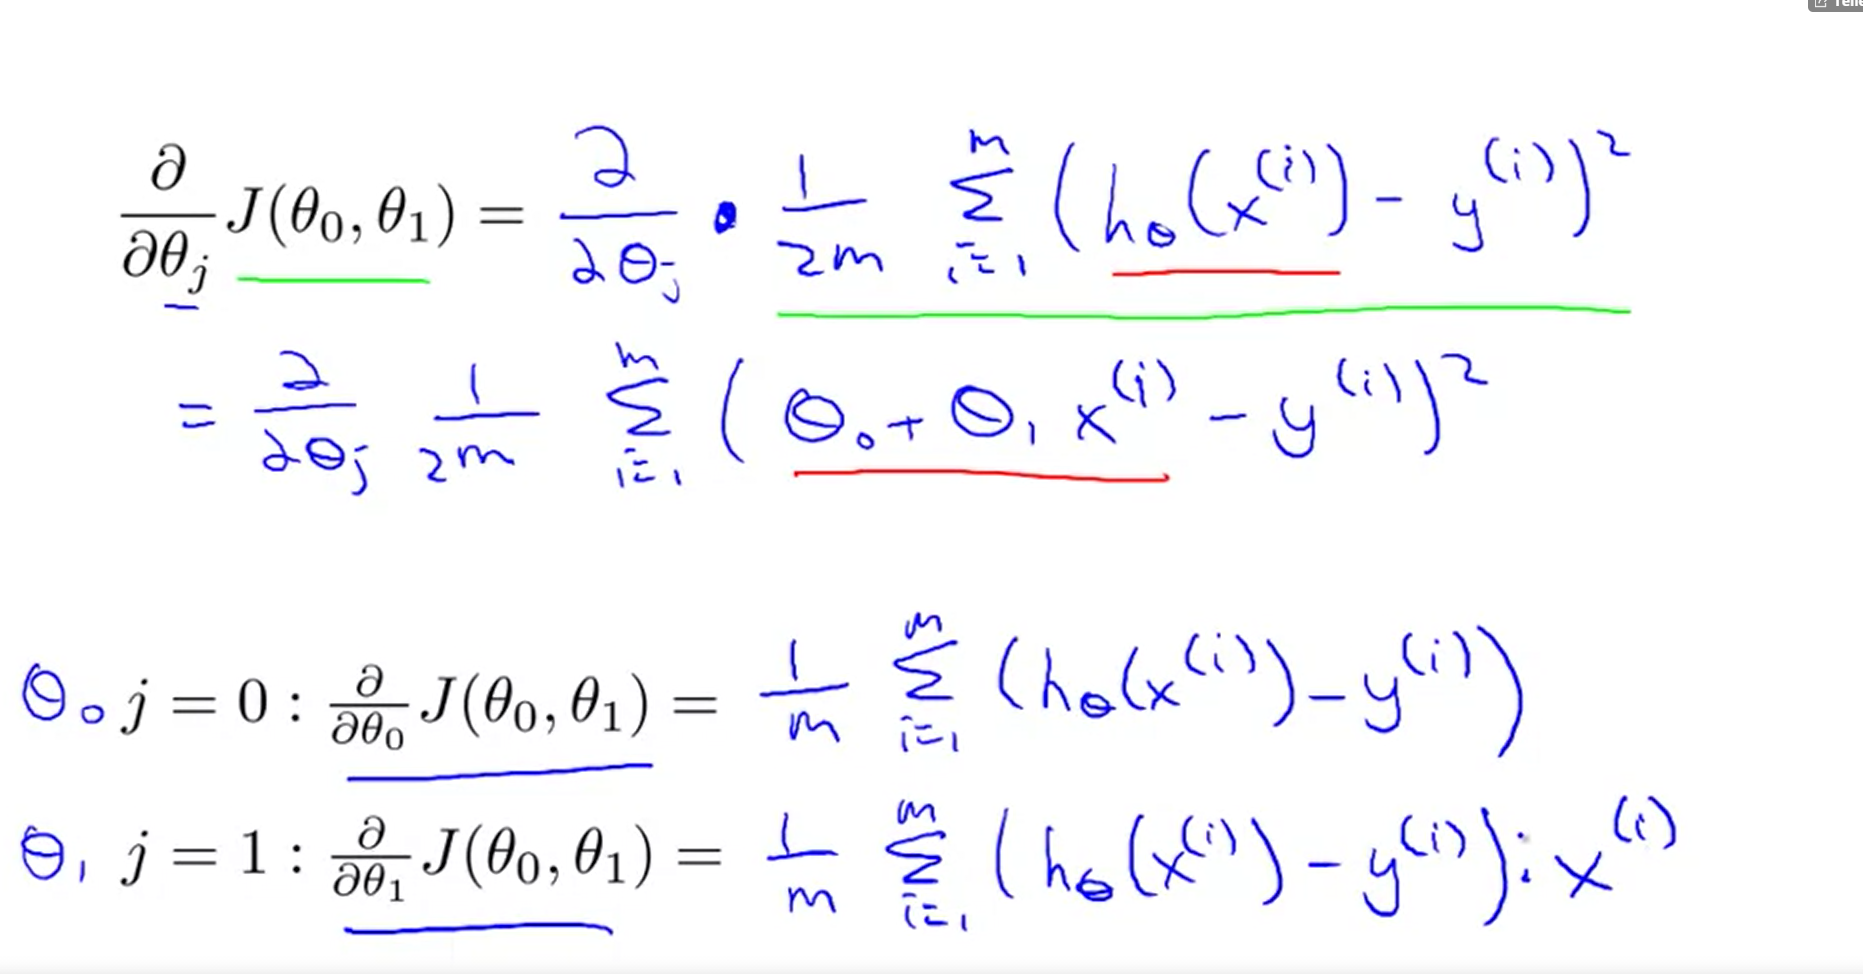 Teile
∂/∂θⱼ J(θ₀, θ₁) = ∂/∂θⱼ • 1/2m Σᵢ₌₁ᵐ (h_θ(x⁽ⁱ⁾) − y⁽ⁱ⁾)²
= ∂/∂θⱼ 1/2m Σᵢ₌₁ᵐ (θ₀ + θ₁ x⁽ⁱ⁾ − y⁽ⁱ⁾)²
θ₀ j = 0 : ∂/∂θ₀ J(θ₀, θ₁) = 1/m Σᵢ₌₁ᵐ (h_θ(x⁽ⁱ⁾) − y⁽ⁱ⁾)
θ₁ j = 1 : ∂/∂θ₁ J(θ₀, θ₁) = 1/m Σᵢ₌₁ᵐ (h_θ(x⁽ⁱ⁾) − y⁽ⁱ⁾) . x⁽ⁱ⁾